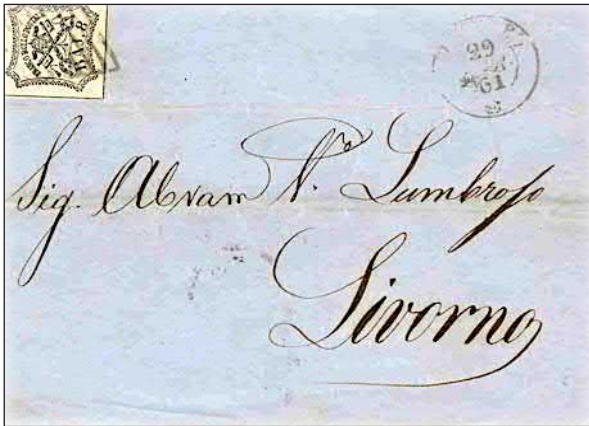 BAJ 8
29
61
Sig. Abram V.
Lumbroso
Livorno